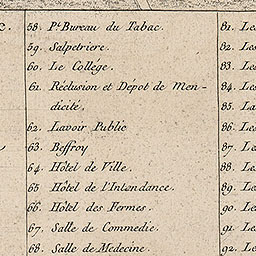 58. Pt. Bureau du Tabac.
59. Salpetriere.
60. Le Collége.
61. Réclusion et Dépot de Men-
dicité.
62. Lavoir Public
63. Beffroy
64. Hôtel de Ville.
65 Hôtel de l'Intendance.
66. Hôtel des Fermes.
67. Salle de Commedie.
68. Salle de Medecine.
81. Le
82. Les
83. Le
84. Les
85. La
86. Le
87. Le
88. Le
89. Le
90. Le
91. Le
92. Le